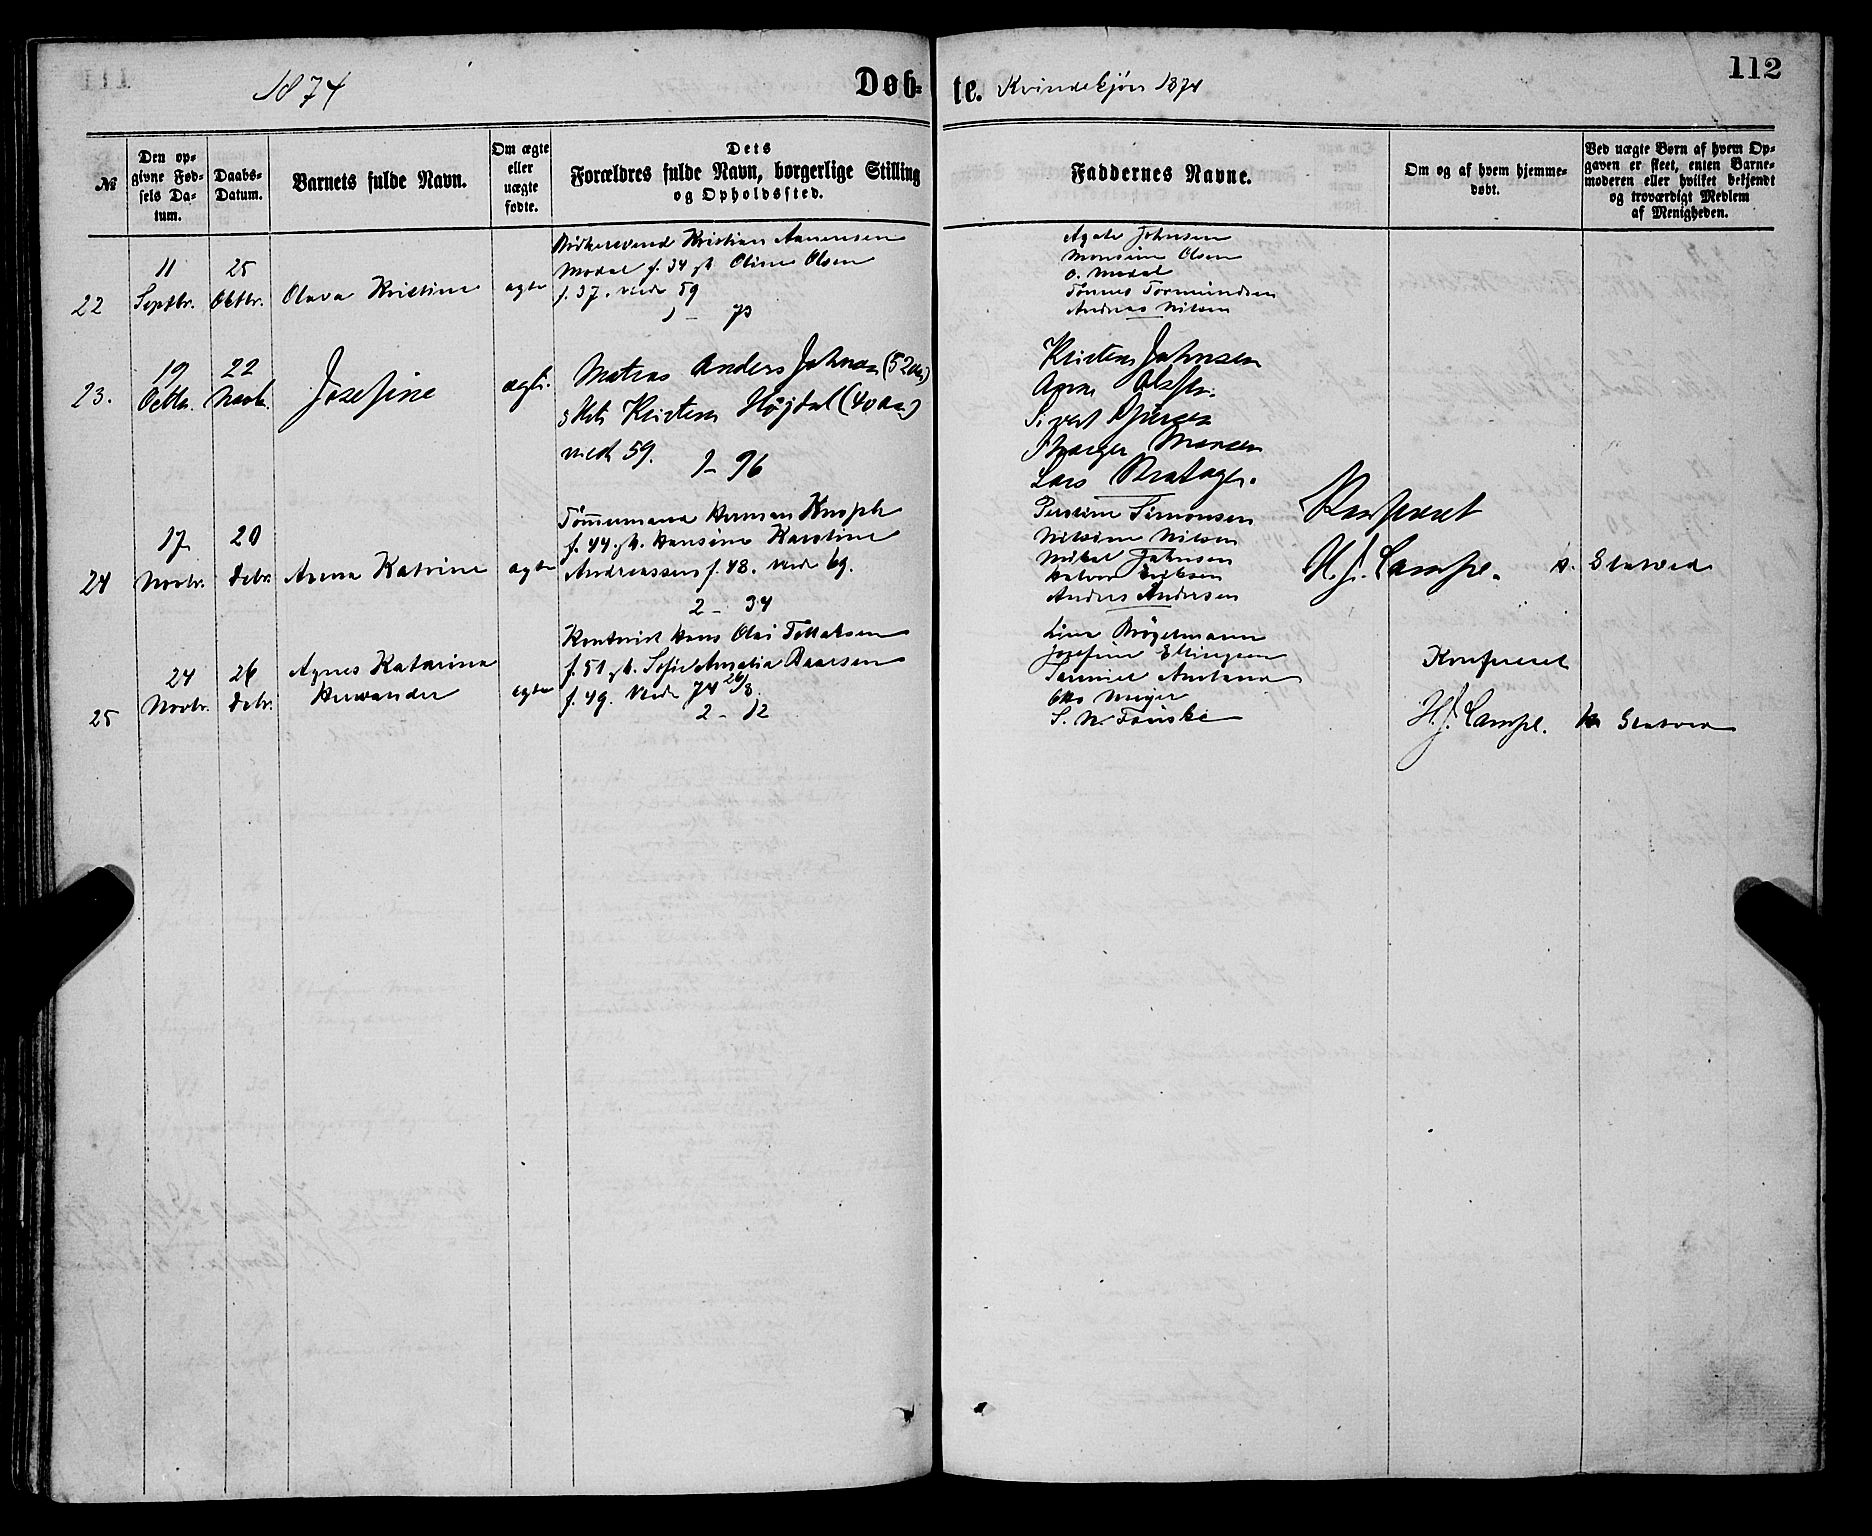 1874
Døb-
te. Kvindekjøn 1874
112
№
Den op-
givne Fød-
sels Da-
tum.
Daabs-
Datum.
Barnets fulde Navn.
Om ægte
eller
uægte
fødte.
Dets
Forældres fulde Navn, borgerlige Stilling
og Opholdssted.
Faddernes Navne.
Om og af hvem hjemme-
døbt.
Ved uægte Børn af hvem Op-
gaven er skeet, enten Barne-
moderen eller hvilket bekjendt
og troværdigt Medlem
af Menigheden.
22
11
Septbr.
25
Oktbr.
Olava Kristine
ægte
Bødkersvend Kristian Anensen
Modal f. 34 gb. Oline Olsen
f. 37. viede 59
Agate Johnsen
Monsine Olsen
O. Modal
Tønnes Tormundsen
Andreas Nilsen
23.
19
Octbr.
22
Novbr.
Josefine
ægte.
Matros Anders Johnsen (52 Aar)
Kristen Højdal (40 Aar)
viede 59.
1 - 96
Kristen Johnsen
Anne
Sivert
Lars
24
17
Novbr.
20
Debr.
Anna Katrine
ægte
Tømmermand Herman Knoph
f. 44 gb. Hansine Karoline
Andreassen f. 48. viede 69.
2 - 34
Simonsen
Nilsine Nilsen
Mikal Johnsen
Halvor Eriksen
Anders Andersen
Konfereret
H. J. Lampe.
k. Slotved
25
24
Novbr.
26
Debr.
Agnes Katarina
Hervander
ægte
Kontorist Hans Olai Tollaksen
f. 51 gb. Sofie Amalia Paaesen
f. 49. Viede 74 26/3.
2 - 12
Lina Brøgelmann
Josefine Ellingsen
Otto Meyer
S. N. Fauske
Konfereret
H. J. Lampe.
k. Slotved